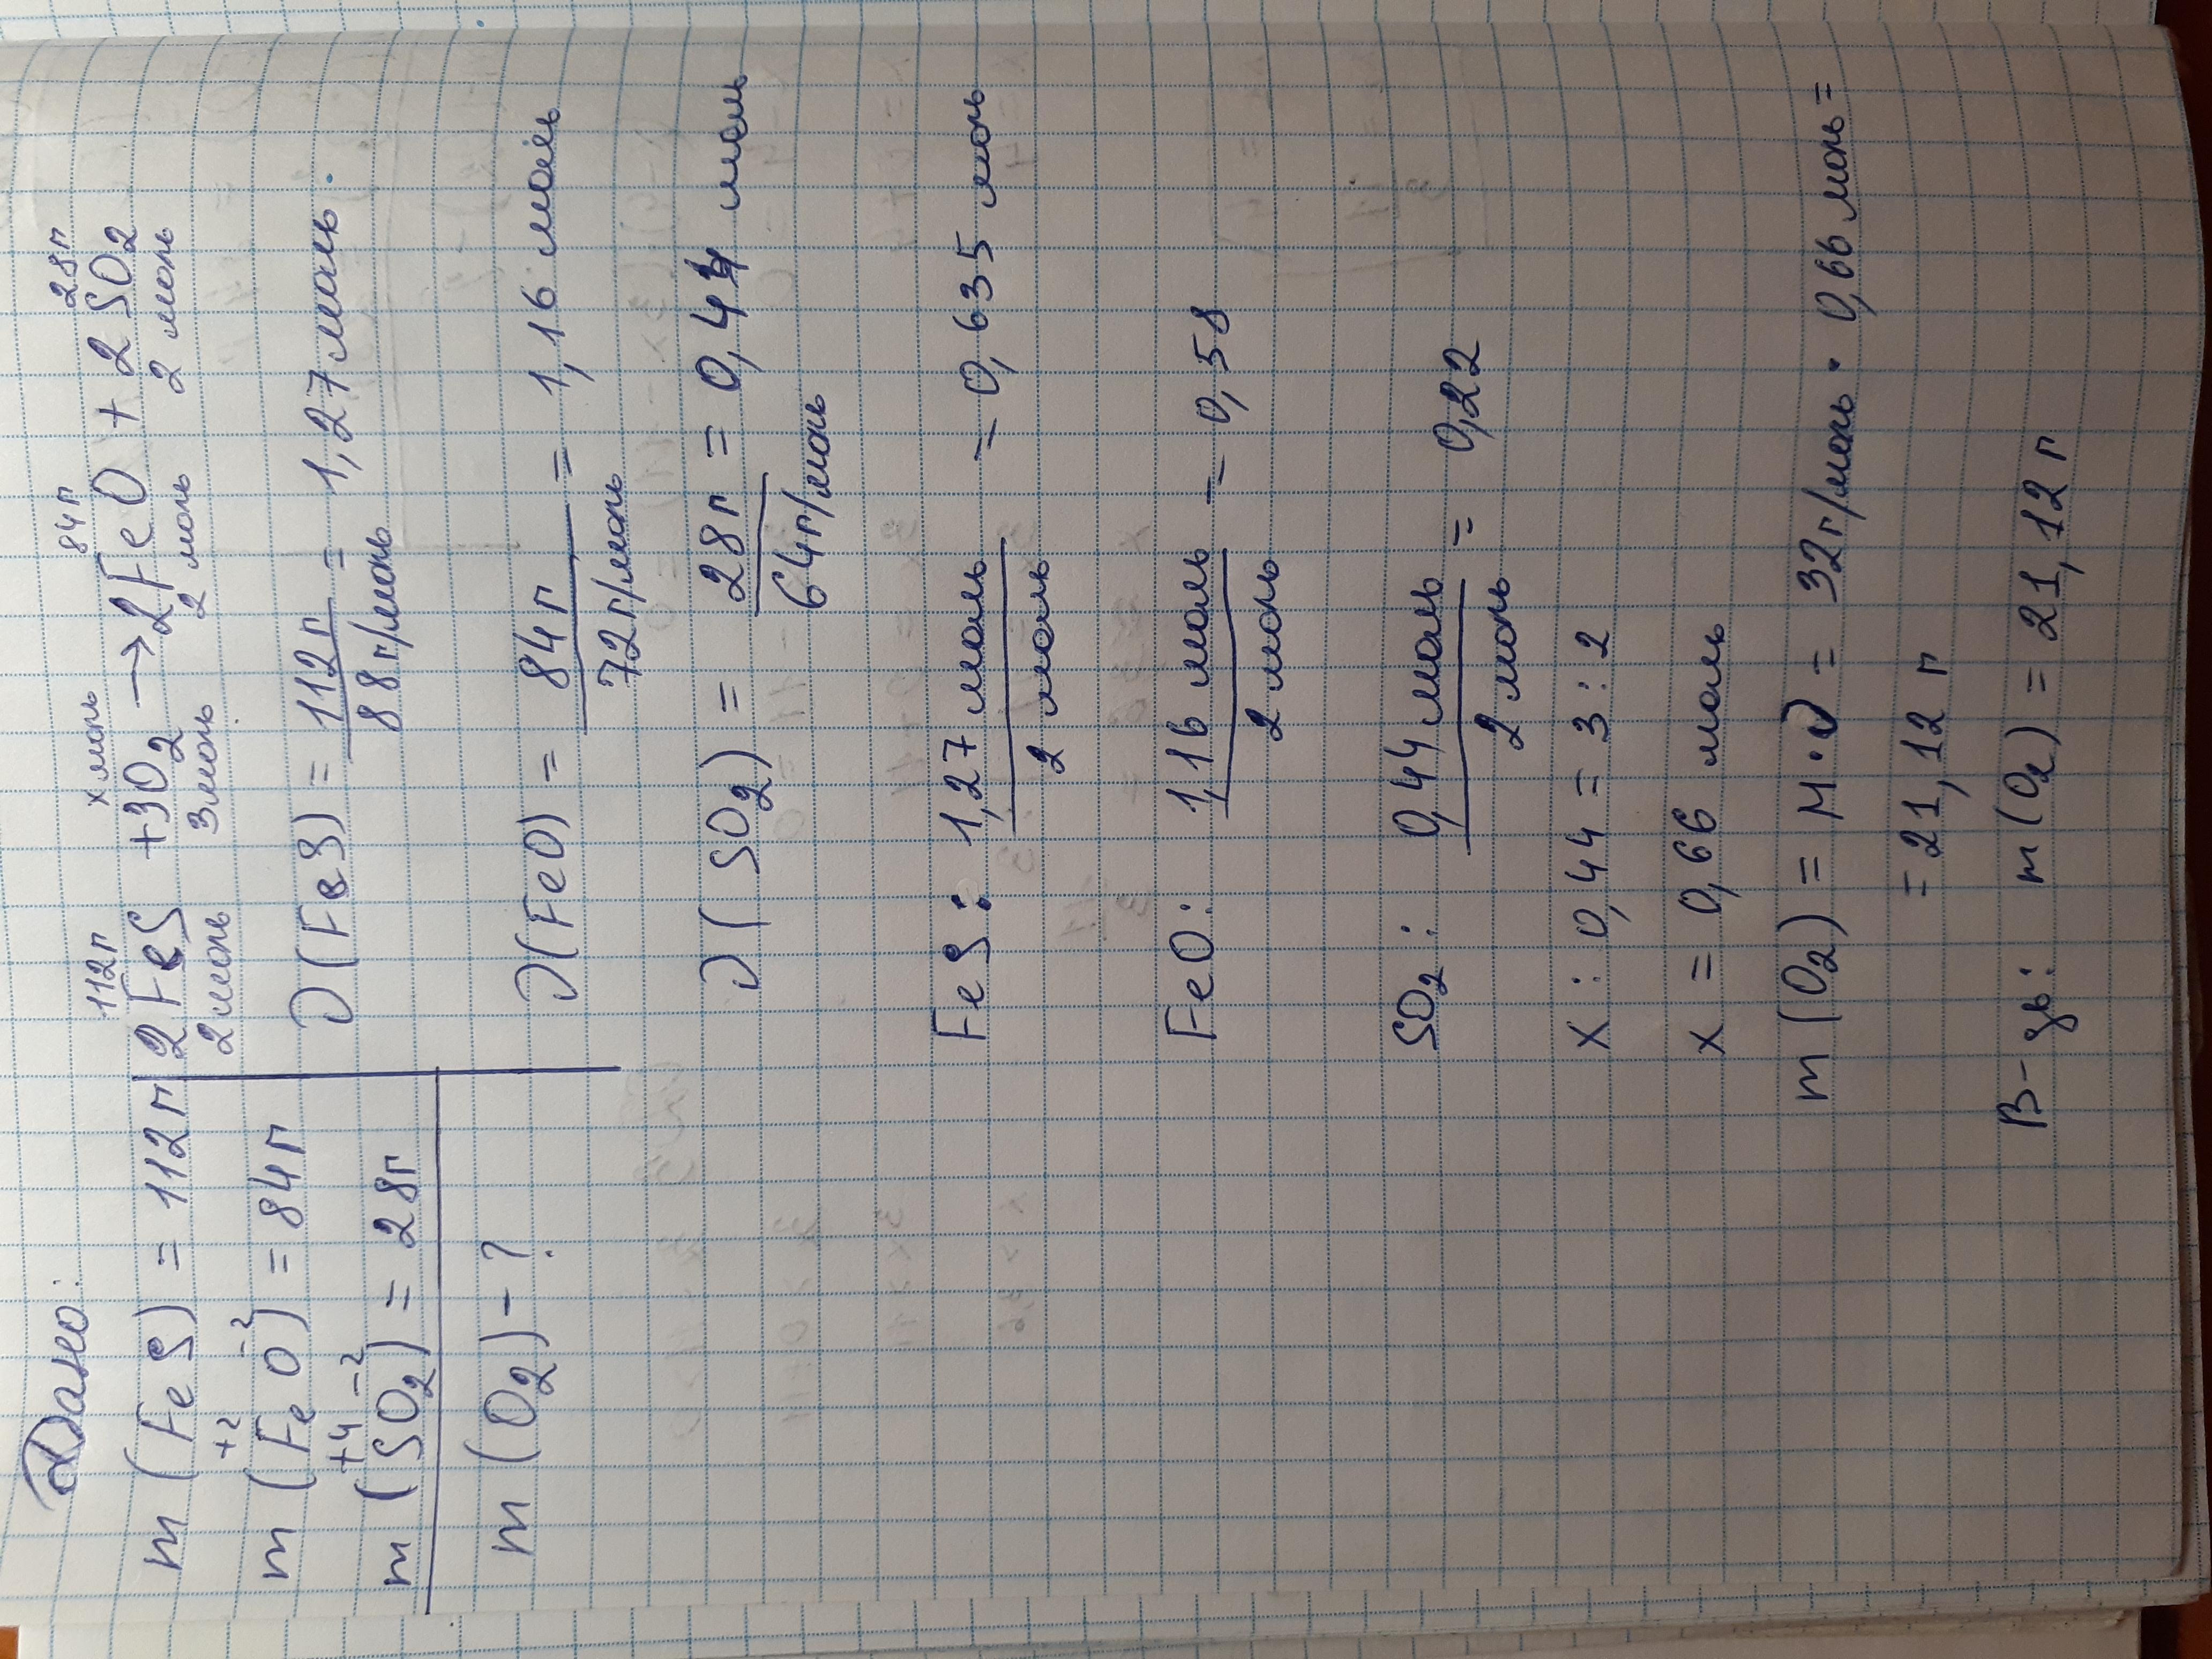 Дано:
m (FeS) = 112 г
+2 -2
m (FeO) = 84 г
+4 -2
m (SO2) = 28 г
m (O2) - ?
112 г х моль 84 г 28 г
2 FeS + 3O2 → 2 FeO + 2 SO2
2 моль 3 моль 2 моль 2 моль
ν (FeS) = 112 г / 88 г/моль = 1,27 моль.
ν (FeO) = 84 г / 72 г/моль = 1,16 моль
ν (SO2) = 28 г / 64 г/моль = 0,44 моль
FeS: 1,27 моль / 2 моль = 0,635 моль
FeO: 1,16 моль / 2 моль = 0,58
SO2: 0,44 моль / 2 моль = 0,22
х : 0,44 = 3 : 2
х = 0,66 моль
m (O2) = M · ν = 32 г/моль · 0,66 моль =
= 21,12 г
В-дь: m (O2) = 21,12 г